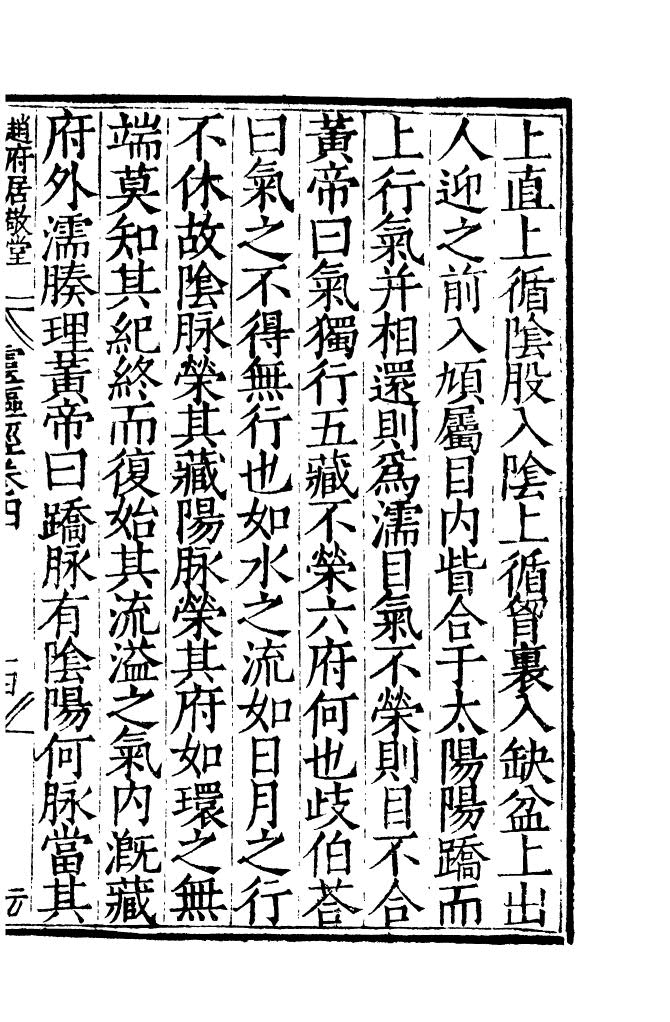 上直上循陰股入陰上循胷裏入缺盆上出
人迎之前入頄屬目内眥合于太陽陽蹻而
上行氣并相還則爲濡目氣不榮則目不合
黃帝曰氣獨行五藏不榮六府何也歧伯荅
曰氣之不得無行也如水之流如日月之行
不休故陰脉榮其藏陽脉榮其府如環之無
端莫知其紀終而復始其流溢之氣内溉藏
府外濡腠理黃帝曰蹻脉有陰陽何脉當其
趙府居敬堂 靈樞經卷四